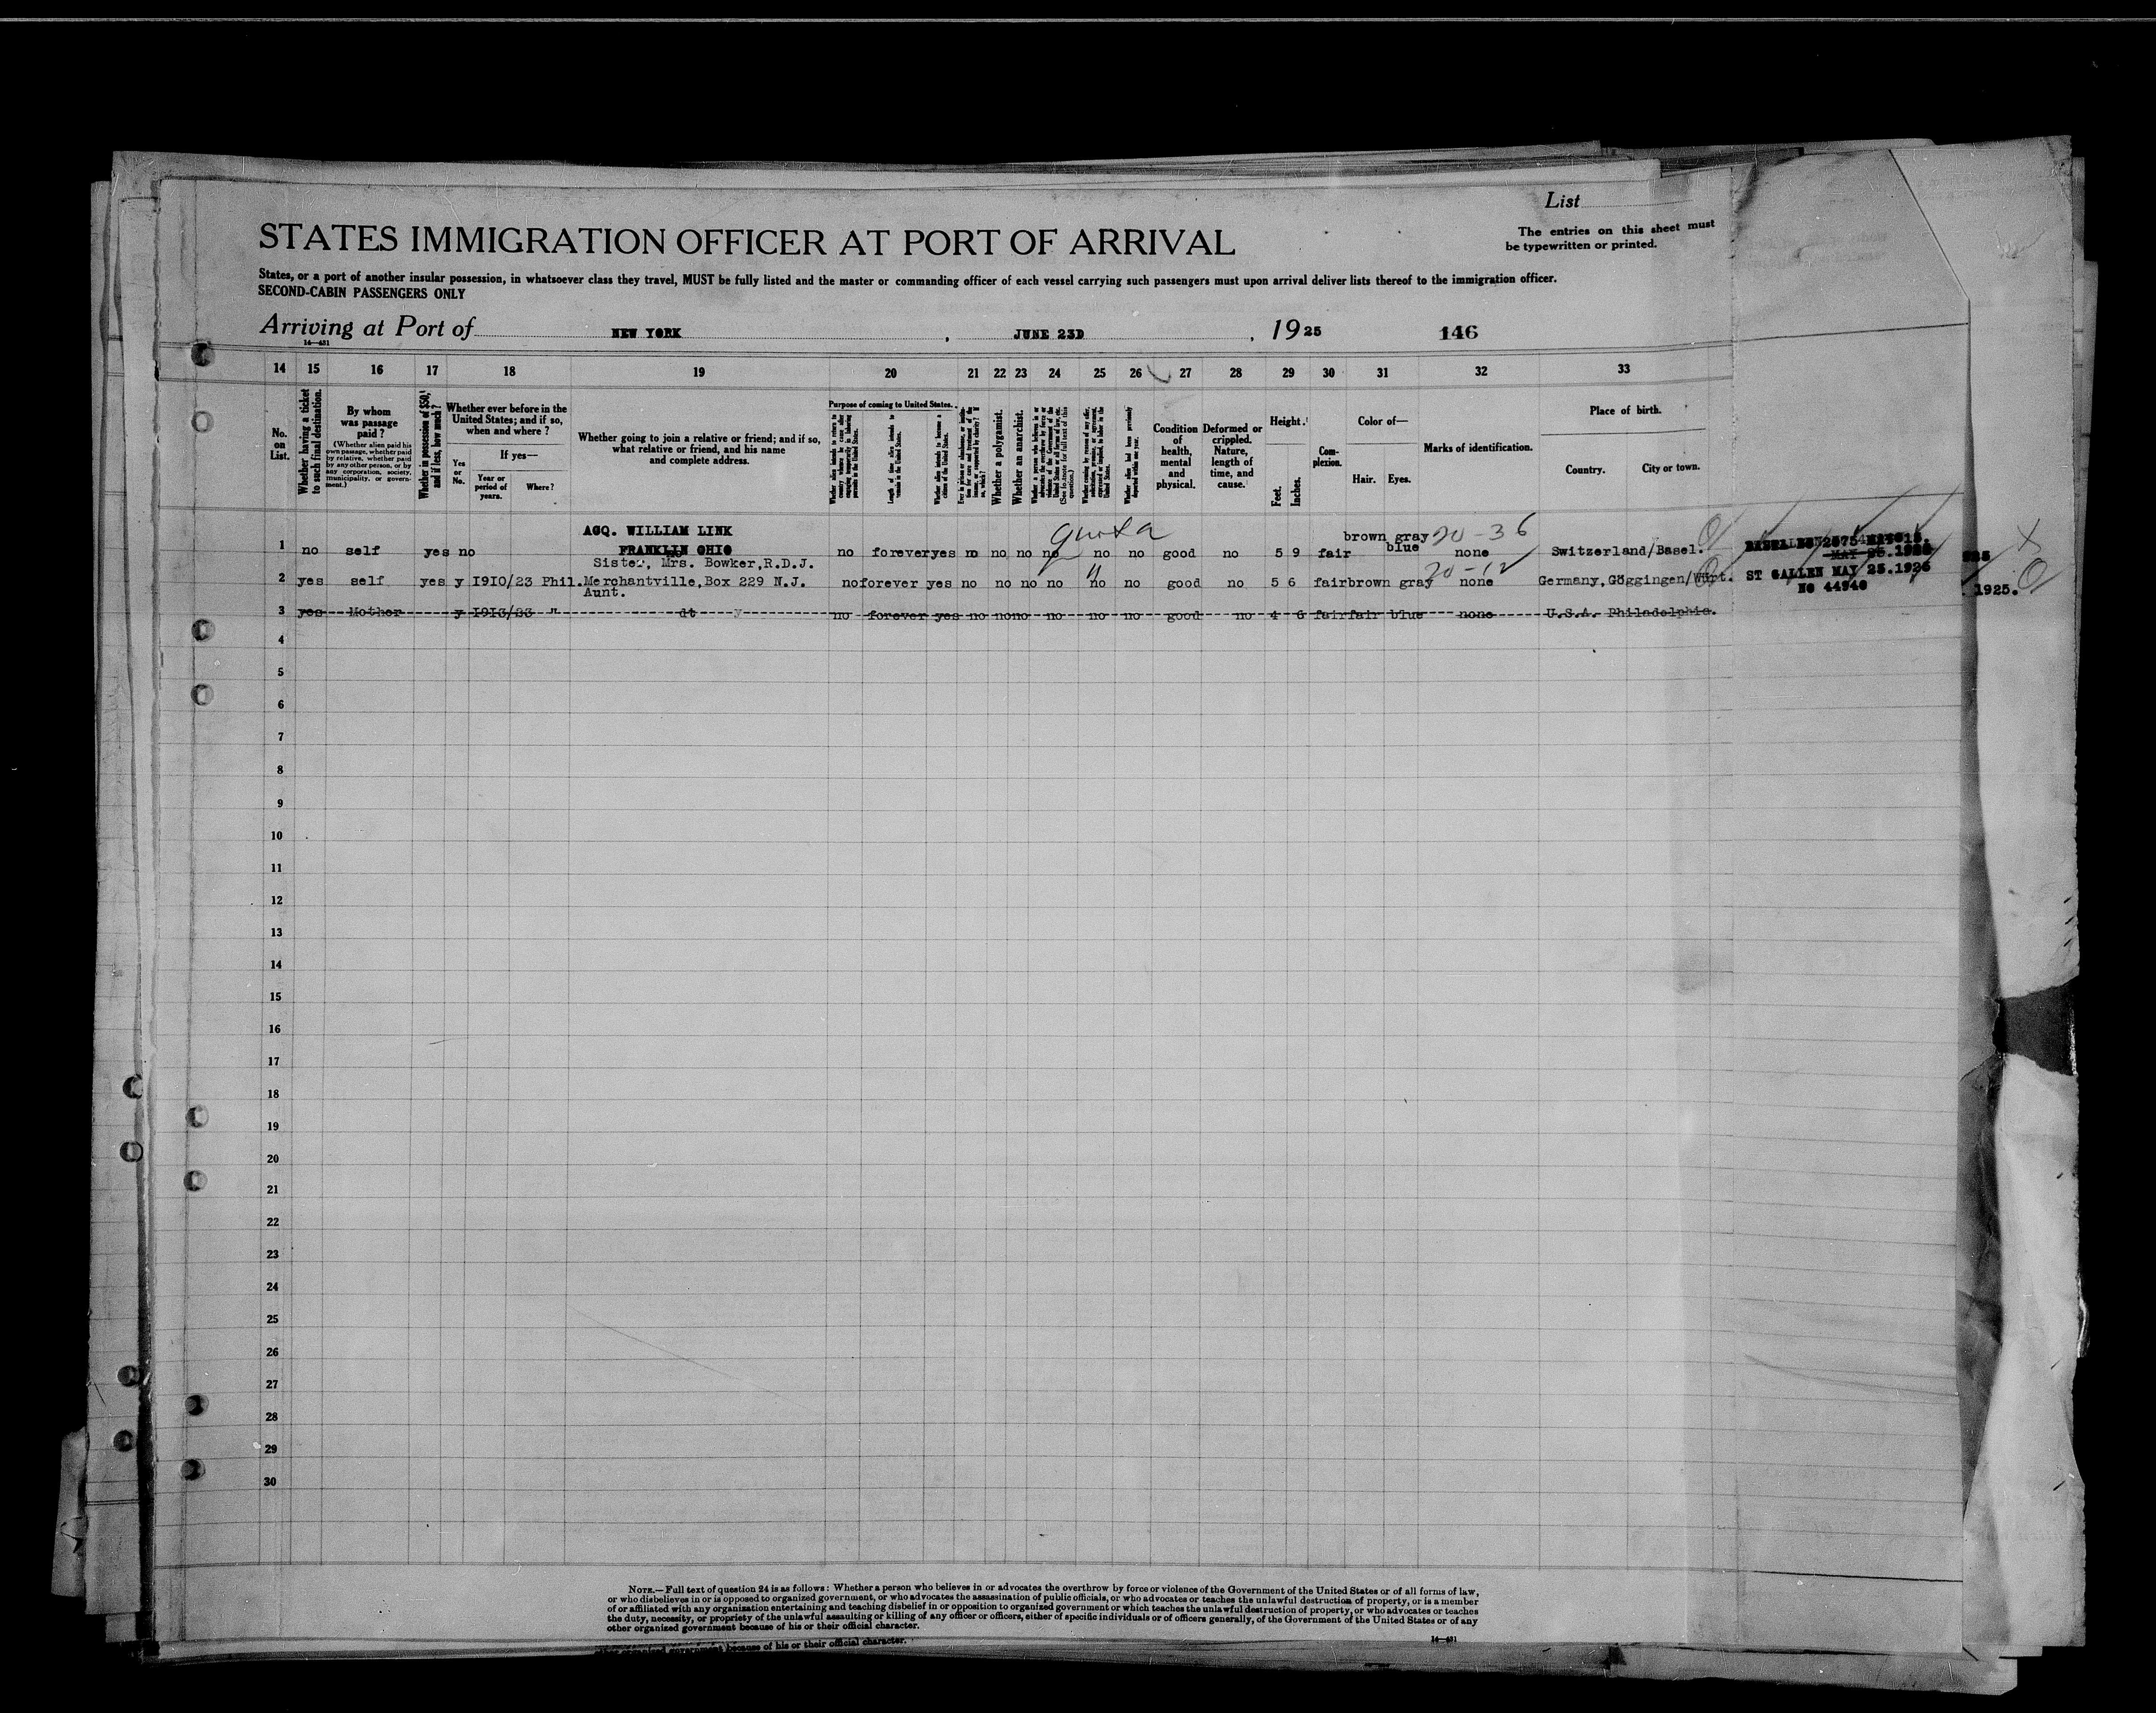 List
STATES IMMIGRATION OFFICER AT PORT OF ARRIVAL
The entries on this sheet must
be typewritten or printed.
States, or a port of another insular possession, in whatsoever class they travel, MUST be fully listed and the master or commanding officer of each vessel carrying such passengers must upon arrival deliver lists thereof to the immigration officer.
SECOND-CABIN PASSENGERS ONLY
Arriving at Port of NEW YORK, JUNE 23D, 1925 146
14—431
14 15 16 17 18 19 20 21 22 23 24 25 26 27 28 29 30 31 32 33
No. on List.
Whether having a ticket to such final destination.
By whom was passage paid?
(Whether alien paid his own passage, whether paid by relative, whether paid by any other person, or by any corporation, society, municipality, or government.)
Whether in possession of $50, and if less, how much?
Whether ever before in the United States; and if so, when and where?
Yes or No.
If yes—
Year or period of years.
Where?
Whether going to join a relative or friend; and if so, what relative or friend, and his name and complete address.
Purpose of coming to United States.
Length of time alien intends to remain in the United States.
Whether alien intends to become a citizen of the United States.
Whether a polygamist.
Whether an anarchist.
Condition of health, mental and physical.
Deformed or crippled. Nature, length of time, and cause.
Height.
Feet.
Inches.
Complexion.
Color of—
Hair.
Eyes.
Marks of identification.
Place of birth.
Country.
City or town.
AGQ. WILLIAM LINK
quota
brown gray 20-36
1 no self yes no FRANKLIN OHIO no forever yes no no no no no no good no 5 9 fair blue none Switzerland/Basel.
MAY 25.1925
Sister, Mrs. Bowker,R.D.J.
20-12
2 yes self yes y 1910/23 Phil. Merchantville,Box 229 N.J. no forever yes no no no no no no good no 5 6 fair brown gray none Germany,Göggingen/Würt. ST GALLEN MAY 25.1925
NO 44940
1925.
Aunt.
3 yes Mother y 1913/23 " dt y no forever yes no no no no no no good no 4 6 fair fair blue none U.S.A. Philadelphia.
4
5
6
7
8
9
10
11
12
13
14
15
16
17
18
19
20
21
22
23
24
25
26
27
28
29
30
NOTE.—Full text of question 24 is as follows: Whether a person who believes in or advocates the overthrow by force or violence of the Government of the United States or of all forms of law,
or who disbelieves in or is opposed to organized government, or who advocates the assassination of public officials, or who advocates or teaches the unlawful destruction of property, or is a member
of or affiliated with any organization entertaining and teaching disbelief in or opposition to organized government or which teaches the unlawful destruction of property, or who advocates or teaches
the duty, necessity, or propriety of the unlawful assaulting or killing of any officer or officers, either of specific individuals or of officers generally, of the Government of the United States or of any
other organized government because of his or their official character.
14—431
other organized government because of his or their official character.